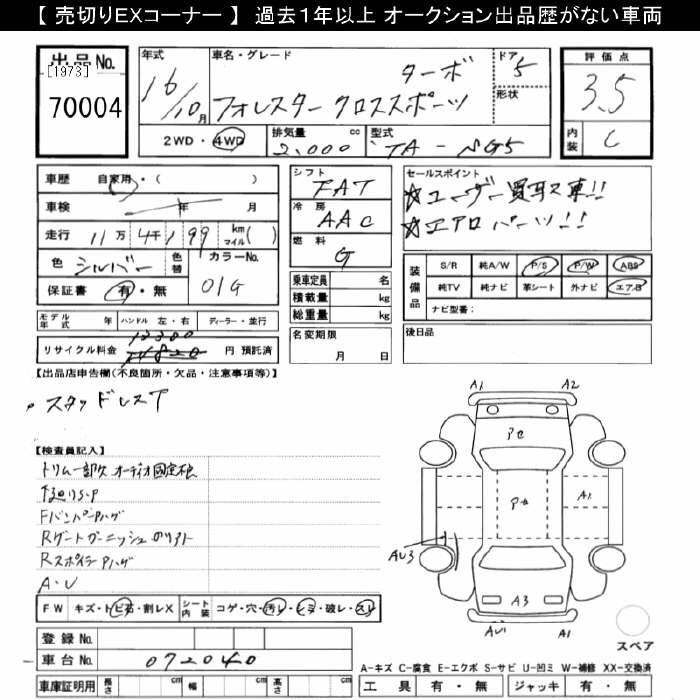 【 売切りEXコーナー 】 過去1年以上 オークション出品歴がない車両
出品No.
[1973]
70004
年式
16/10月
車名・グレード
ターボ
フォレスター クロススポーツ
ドア
5
形状
評価点
3.5
内装
C
2WD・4WD
排気量
cc
2.000
型式
TA-SG5
車歴 自家用・( )
車検 年 月
走行 11万 4千 199 km マイル( )
色 シルバー 色替
カラーNo.
01G
保証書 有・無
シフト
FAT
冷房
AAC
燃料
G
乗車定員 名
積載量 kg
総重量 kg
名変期限
月 日
セールスポイント
☆ユーザー買取ス車!!
☆エアロパーツ!!
装備品
S/R 純A/W P/S P/W ABS
純TV 純ナビ 革シート 外ナビ エアB
ナビ型番:
後日品
モデル年式 年 ハンドル 左・右 ディーラー・並行
リサイクル料金 円 預託済
【出品店申告欄(不良箇所・欠品・注意事項等)】
スタッドレス下
【検査員記入】
トリム一部欠 オーディオ固定不良
下廻りS・P
FバンパーPハゲ
Rゲートガーニッシュ
RスポイラーPハゲ
A・U
FW キズ・トビ石・割レX シート内装 コゲ・穴・汚レ・シミ・破レ・スリ
登録No.
車台No. 072040
車庫証明用 長さ cm 幅 cm 高さ cm
A1
A2
アセ
アセ
A1
AU3
A3
AU1
A1
スペア
A-キズ C-腐食 E-エクボ S-サビ U-凹ミ W-補修 XX-交換済
工具 有・無 ジャッキ 有・無